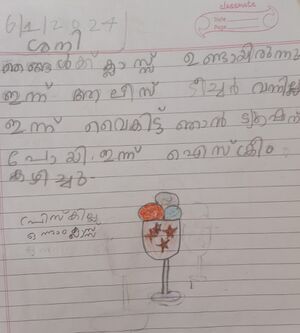 classmate
Date
Page
6/1/2024
ശനി
ഞങ്ങൾക്ക് ക്ലാസ്സ് ഉണ്ടായിരുന്നു
ഇന്ന് അലീസ് ടീച്ചർ വന്നില്ല
ഇന്ന് വൈകിട്ട് ഞാൻ ട്യൂഷൻ
പോയി. ഇന്ന് ഐസ്ക്രീം
കഴിച്ചു.
ഒന്നാംക്ലാസ്സ്